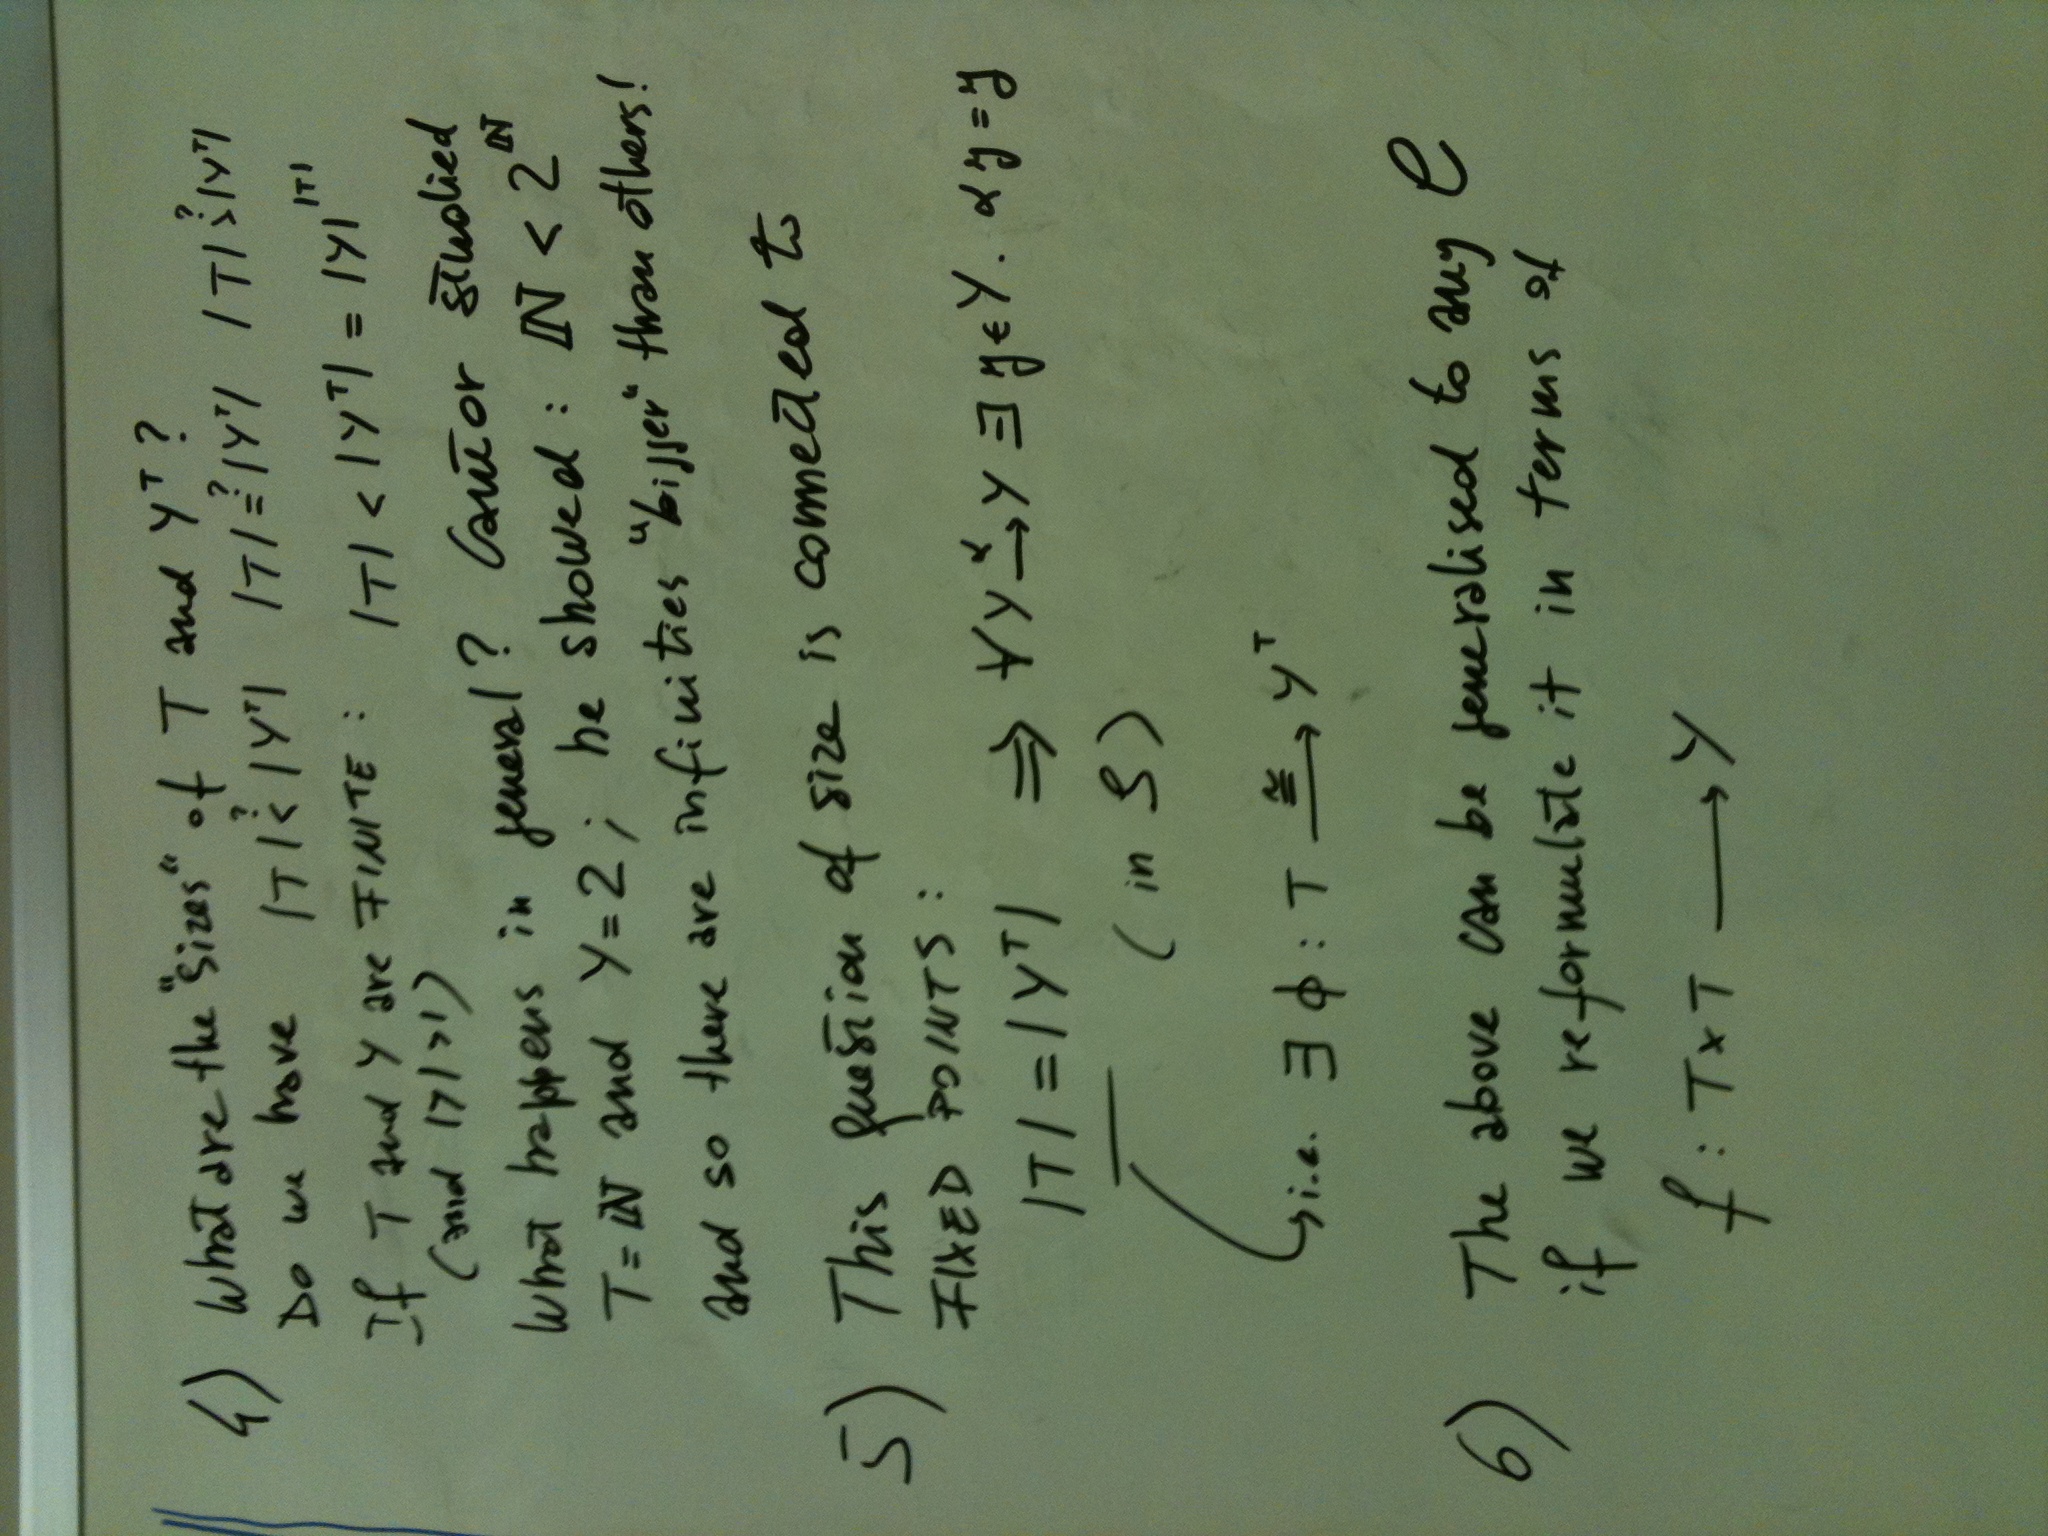 4) What are the "sizes" of T and Y^T?
Do we have |T| <^? |Y^T| |T| =^? |Y^T| |T| >^? |Y^T|
If T and Y are FINITE : |T| < |Y^T| = |Y|^|T|
(and |Y| >1)
What happens in general? Cantor studied
T=ℕ and Y=2; he showed : ℕ < 2^ℕ
and so there are infinities "bigger" than others!
5) This question of size is connected to
FIXED POINTS :
|T| = |Y^T| ⇒ ∀Y →^α Y ∃ y∈Y. αy=y
(in S)
i.e. ∃ ϕ : T →^≅ Y^T
6) The above can be generalised to any C
if we reformulate it in terms of
f : T×T → Y